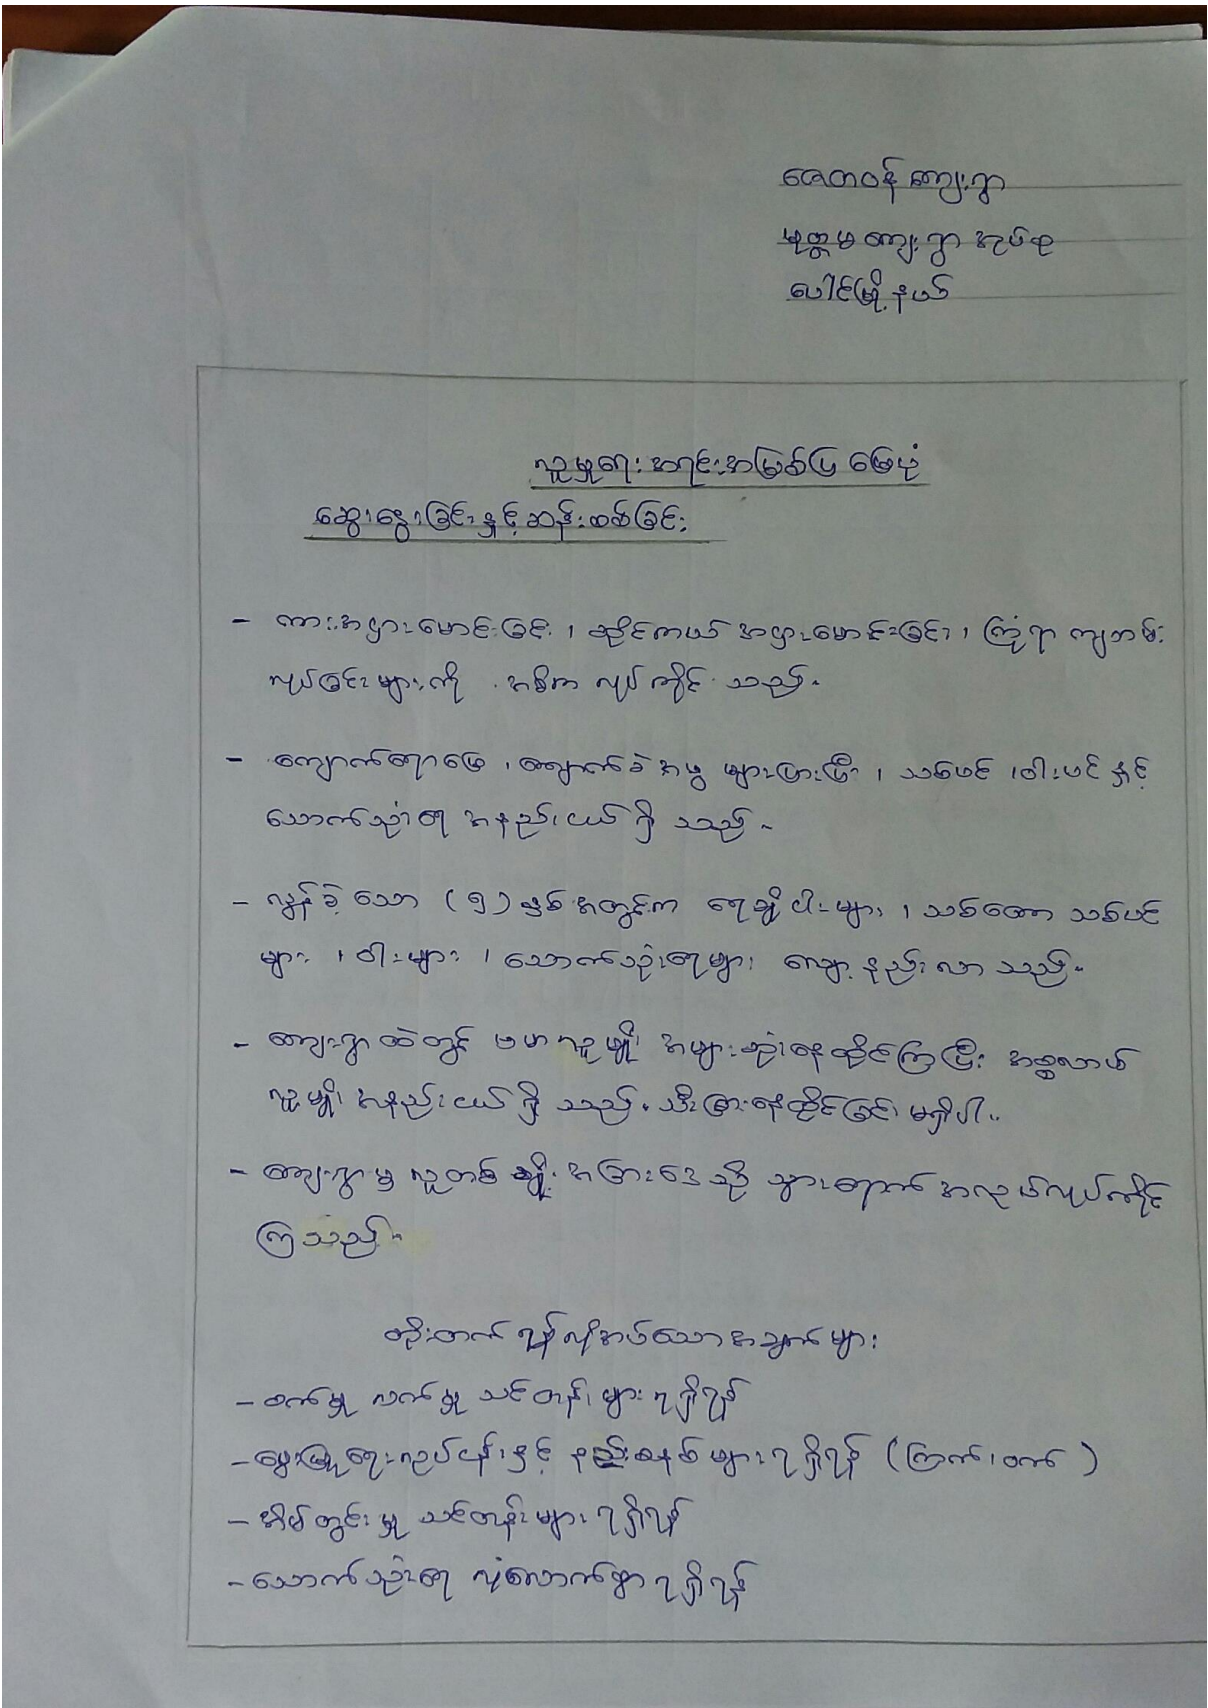 ဇေတဝန် ကျေးရွာ
မုတ္တမ ကျေးရွာ အုပ်စု
ပေါင်မြို့နယ်
လူမှုရေး အရင်းအမြစ်ပြ မြေပုံ
ဆွေးနွေးခြင်းနှင့် ဆန်းစစ်ခြင်း
- ကားအငှားမောင်းခြင်း ၊ ဆိုင်ကယ် အငှားမောင်းခြင်း ၊ ကြုံရာ ကျဘမ်း
လုပ်ခြင်းများကို အဓိက လုပ်ကိုင် သည်။
- ကျောက်ရောမြေ ၊ ကျောက်ခဲ အမှု များပြားပြီး ၊ သစ်ပင် ၊ ဝါးပင် နှင့်
သောက်သုံးရေ အနည်းငယ် ရှိ သည်။
- လွန်ခဲ့သော (၅) နှစ်အတွင်းက ရေချိုငါးများ ၊ သစ်တော သစ်ပင်
များ ၊ ဝါးများ ၊ သောက်သုံးရေများ လျော့နည်းလာ သည်။
- ကျေးရွာထဲတွင် ဗမာလူမျိုး အများဆုံးနေထိုင်ကြပြီး အစ္စလာမ်
လူမျိုး အနည်းငယ် ရှိ သည်။ သီးခြားနေထိုင်ခြင်း မရှိပါ။
- ကျေးရွာမှ လူတစ်ချို့ အခြားဒေသသို့ သွားရောက် အလုပ်လုပ်ကိုင်
ကြသည်။
တိုးတက်ရန်လိုအပ်သောအချက်များ
- စက်မှု လက်မှု သင်တန်းများ ရရှိရန်
- မွေးမြူရေးလုပ်ငန်းနှင့် နည်းစနစ်များ ရရှိရန် (ကြက်၊ဝက်)
- အိမ်တွင်းမှု သင်တန်းများ ရရှိရန်
- သောက်သုံးရေ လုံလောက်စွာ ရရှိရန်